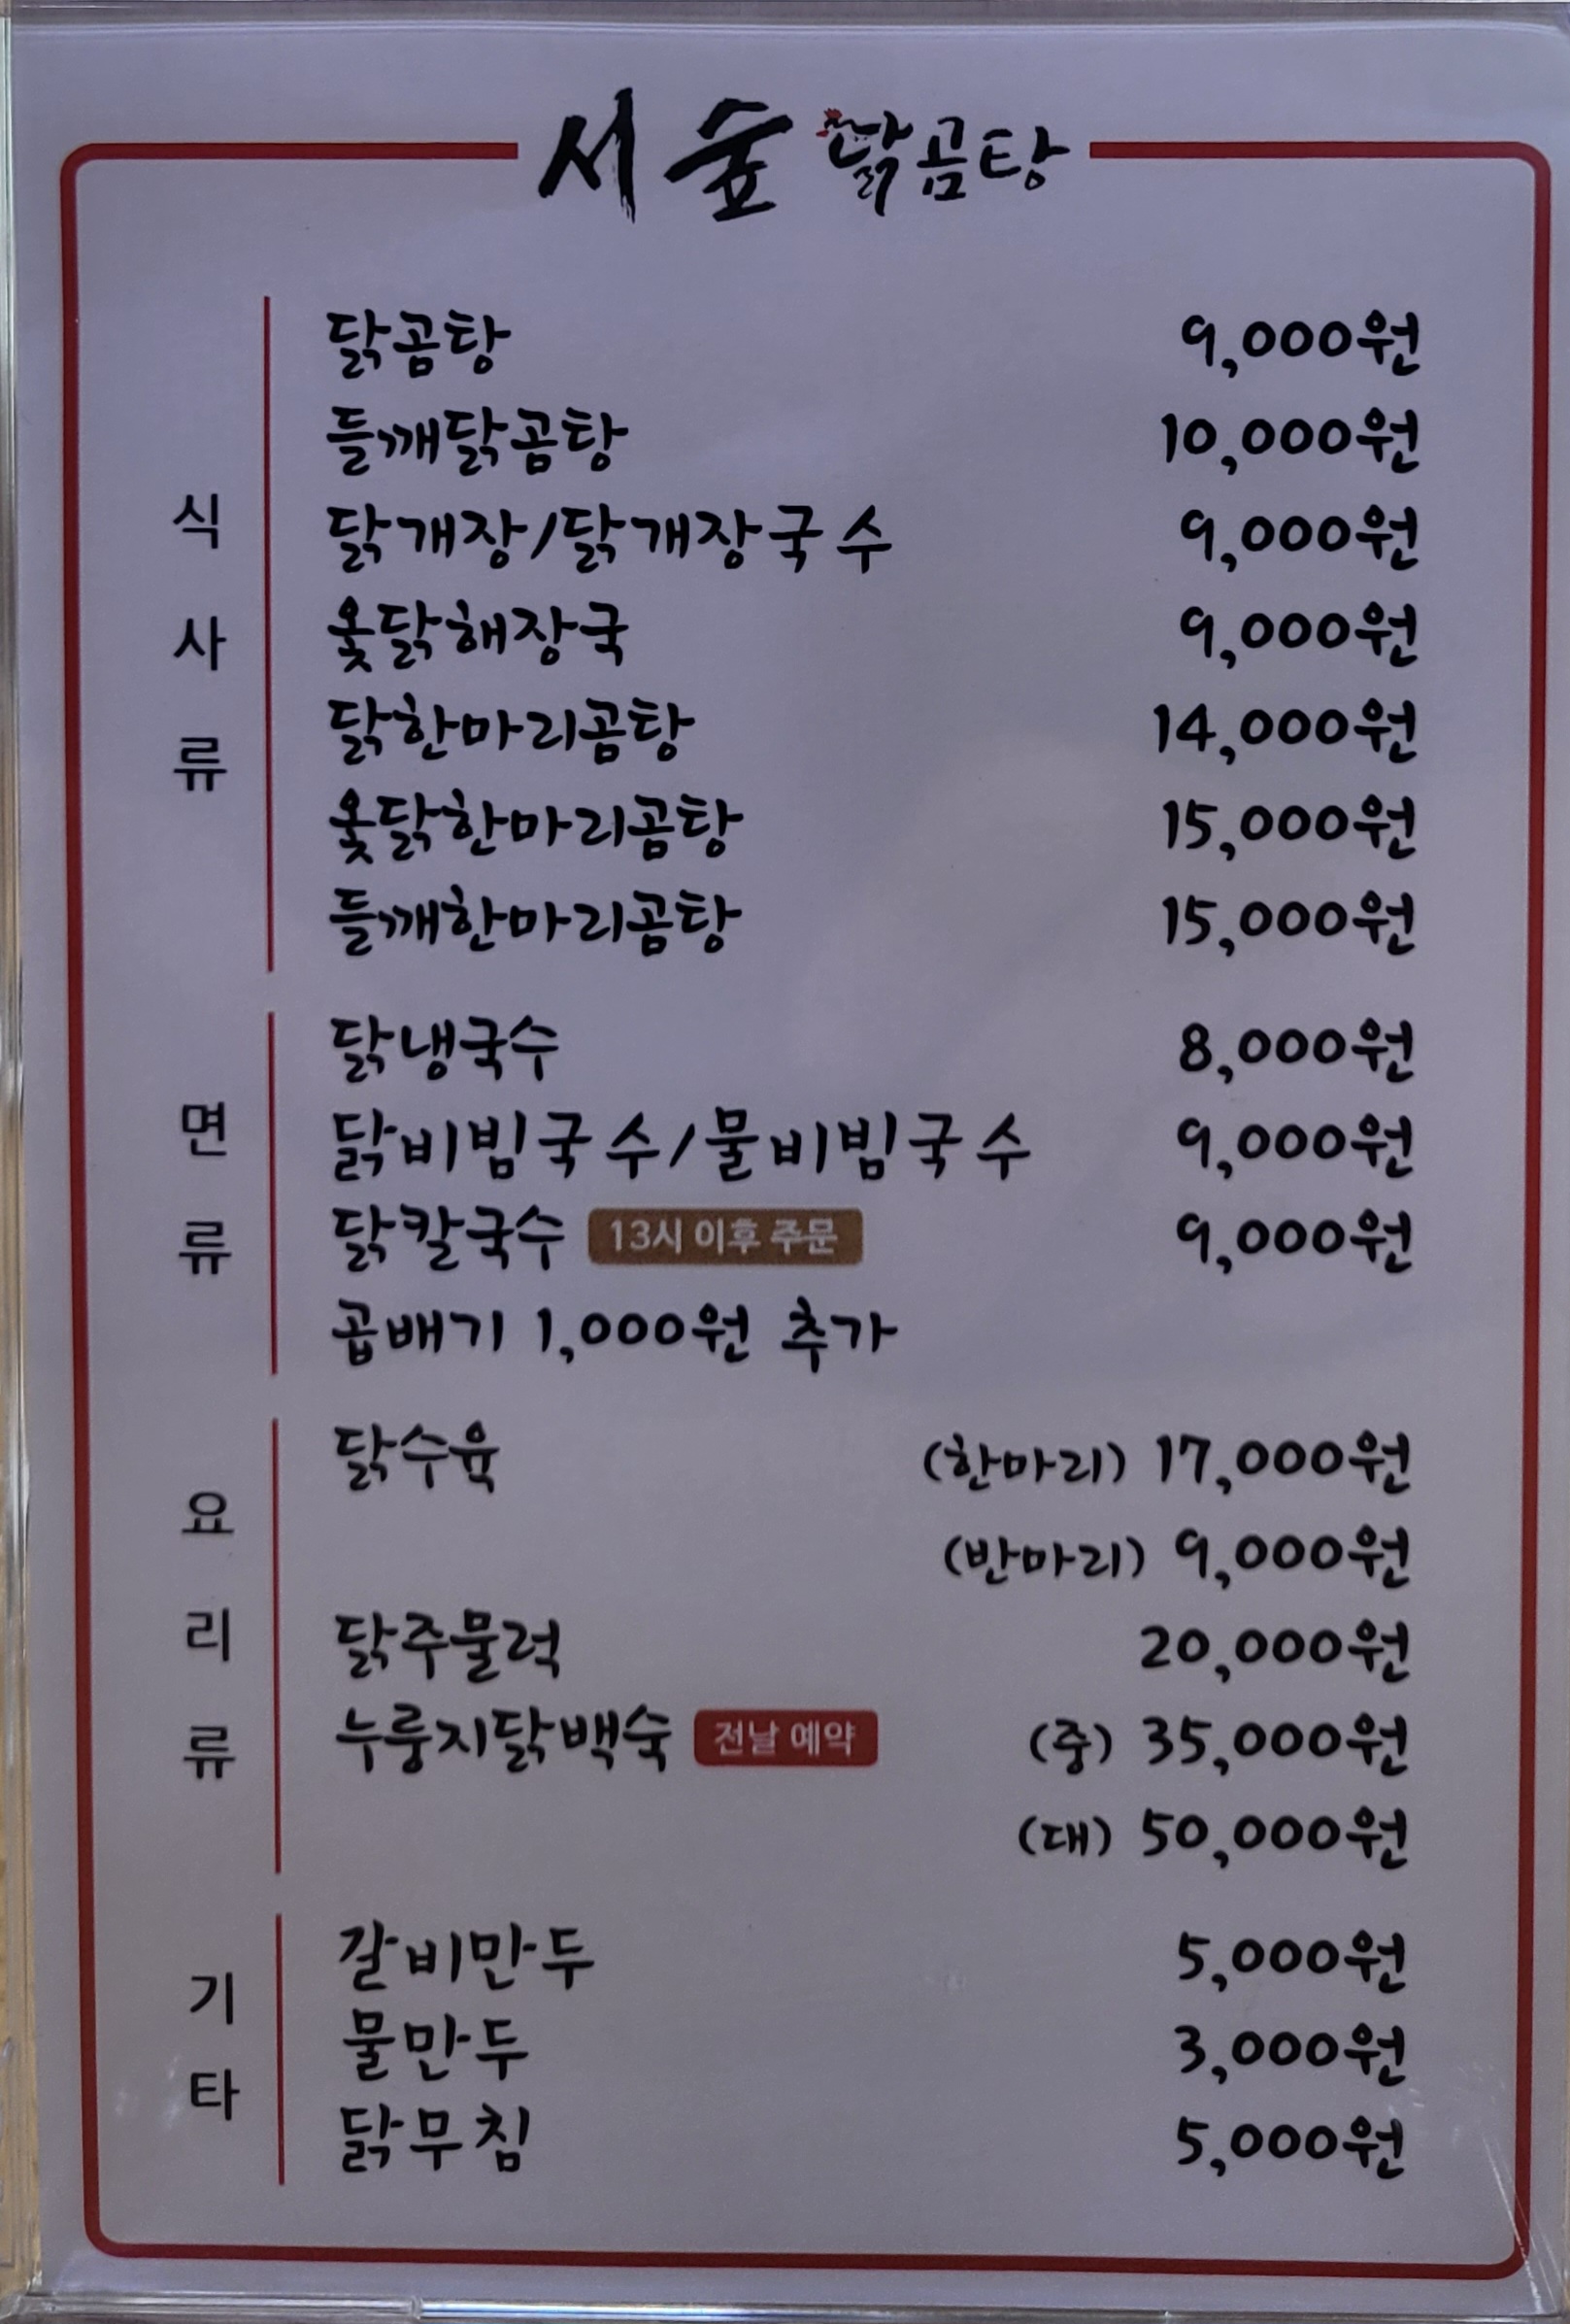 서숲 닭곰탕
식사류
닭곰탕 9,000원
들깨닭곰탕 10,000원
닭개장/닭개장국수 9,000원
옻닭해장국 9,000원
닭한마리곰탕 14,000원
옻닭한마리곰탕 15,000원
들깨한마리곰탕 15,000원
면류
닭냉국수 8,000원
닭비빔국수/물비빔국수 9,000원
닭칼국수 13시 이후 주문 9,000원
곱배기 1,000원 추가
요리류
닭수육 (한마리) 17,000원
(반마리) 9,000원
닭주물럭 20,000원
누룽지닭백숙 전날 예약 (중) 35,000원
(대) 50,000원
기타
갈비만두 5,000원
물만두 3,000원
닭무침 5,000원